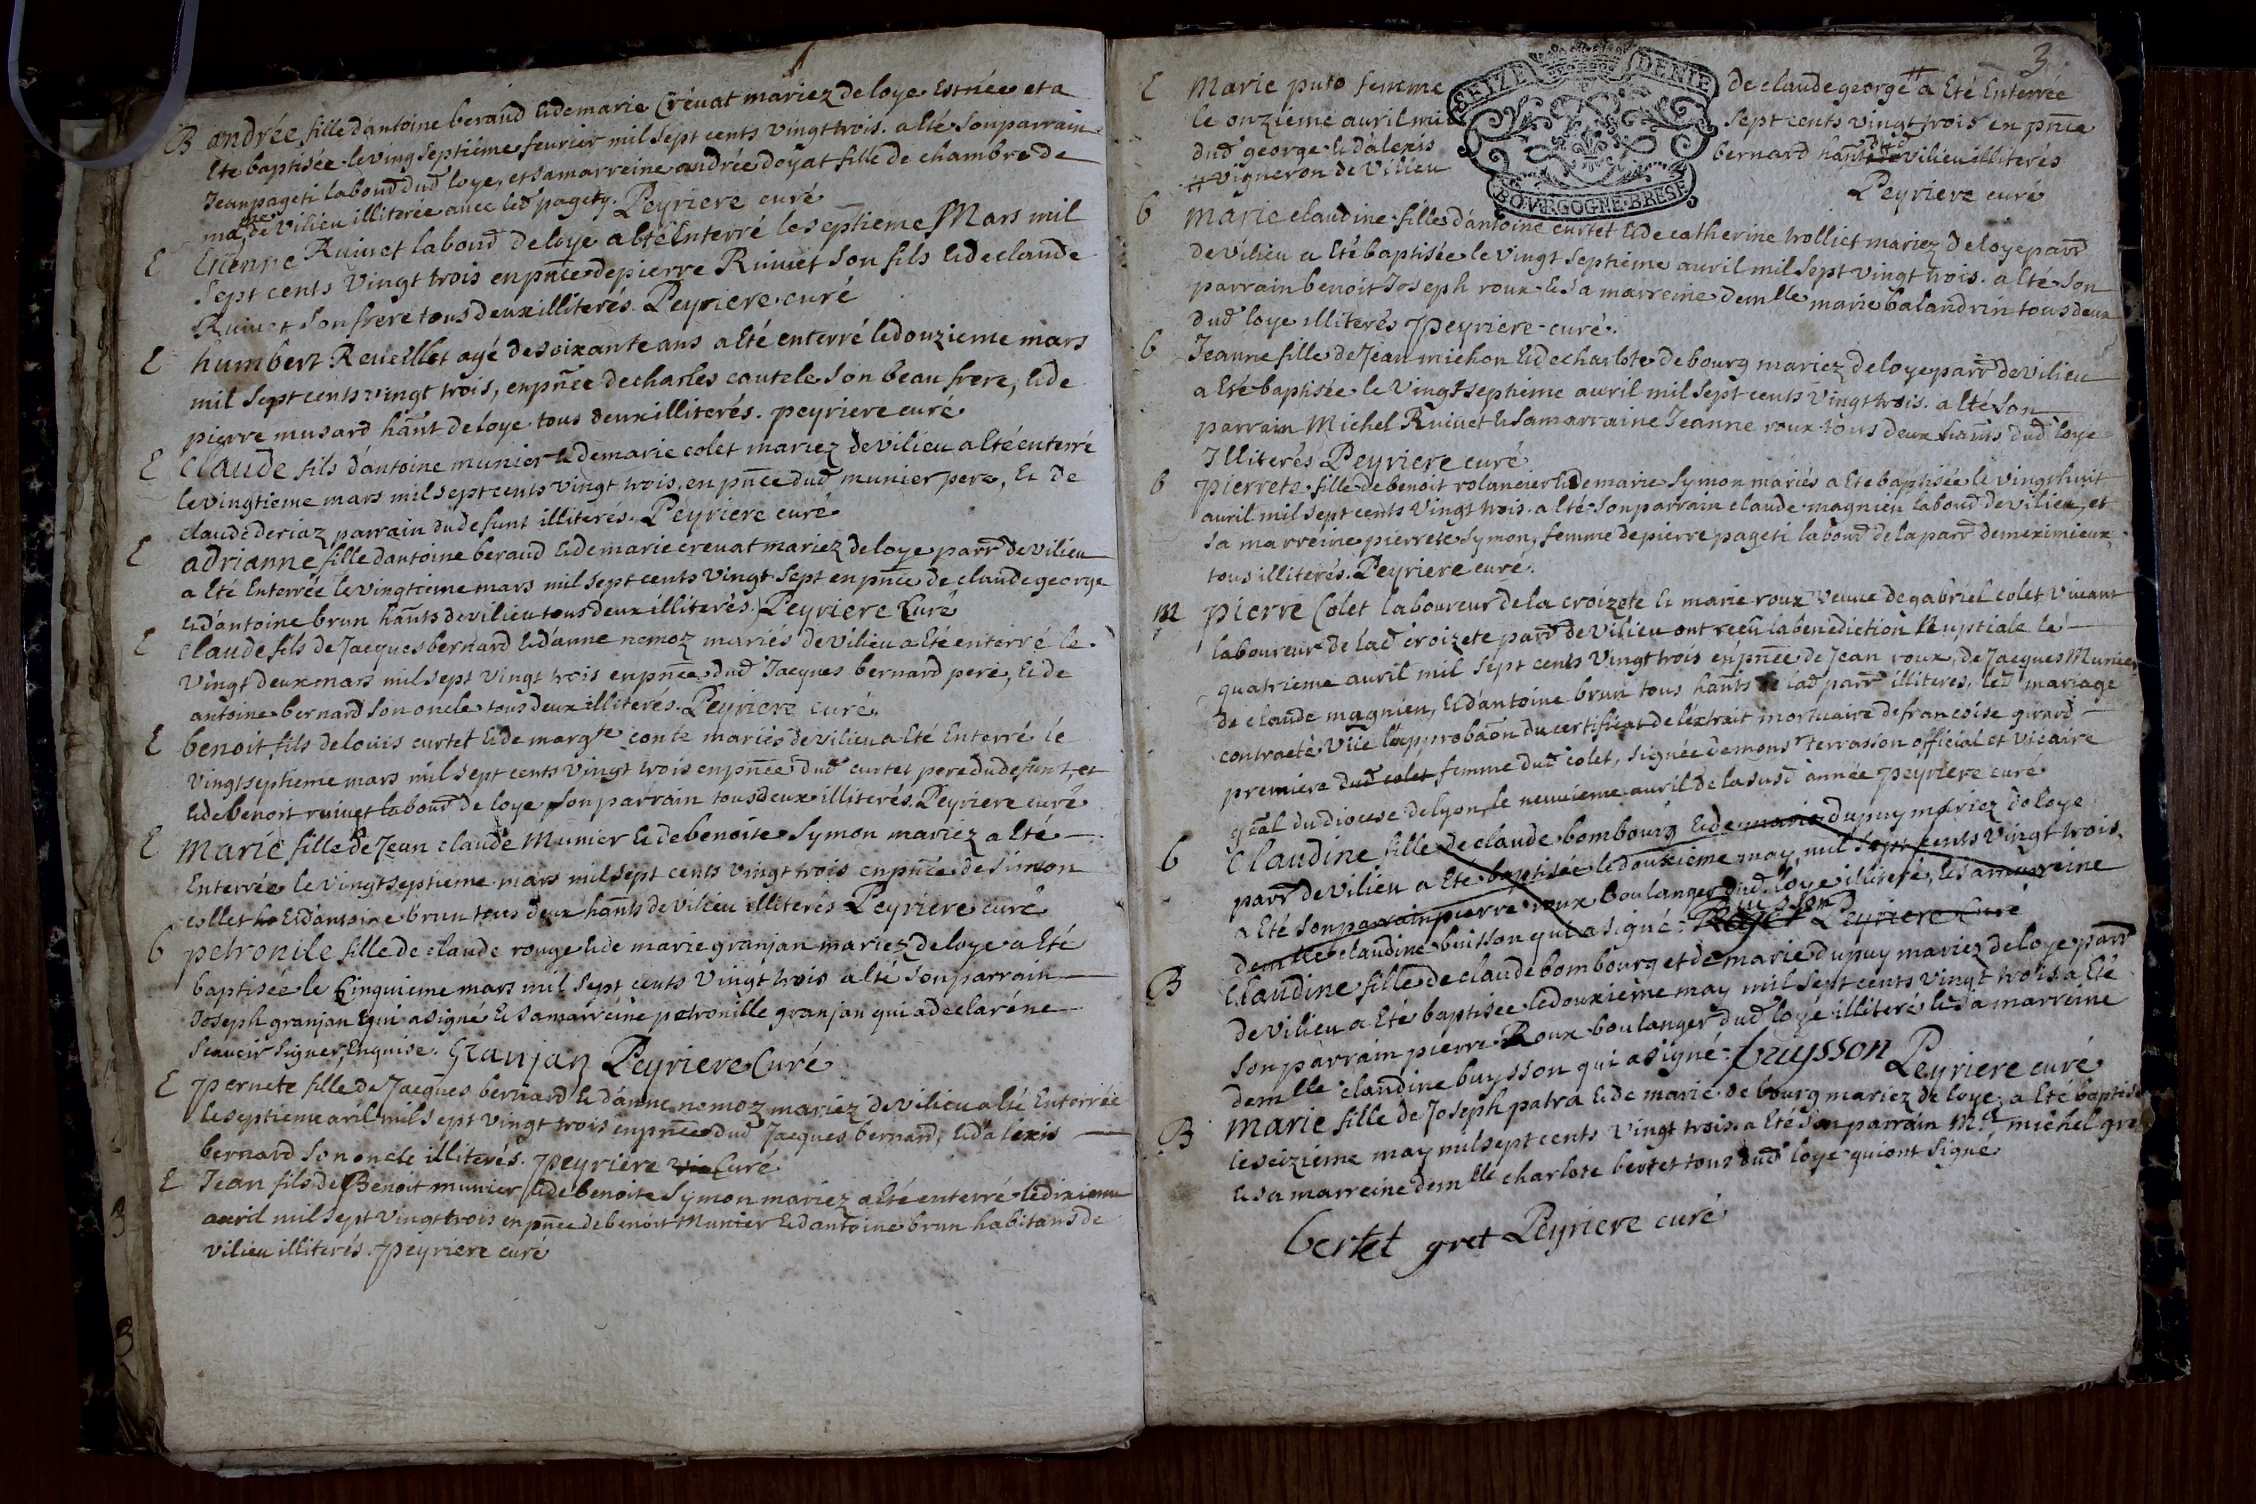 B andrée fille dantoine beraud & de marie Crévat mariez de loye Est née et a
Eté baptisée le ving septiéme fevrier mil sept cents vingt trois. a Eté son parrain
Jean pageti laboud dud loye, et sa marreine andrée doyat fille de chambre de
de vilieu illiterée avec led pagety. Peyriere curé
E Etienne Ruivet laboud de loye a Eté Enterré le septieme Mars mil
sept cents Vingt trois en pnce de pierre Ruivet son fils & de claude
Ruivet son frere tous deux illiterés. Peyriere curé
E humbert Reveillet agé de soixante ans a Eté enterré le douzieme mars
mil sept cents vingt trois, en pnce de charles cautele son beau frere, & de
pierre musard hant de loye tous deux illiterés. peyriere curé
E Claude fils dantoine munier & de marie colet mariez de vilieu a Eté enterré
le vingtieme mars mil sept cents vingt trois. en pnce dud munier pere, & de
claude deriaz parrain du defunt illiterés. Peyriere curé
E adrianne fille dantoine beraud & de marie crevat mariez de loye parr de vilieu
a Eté Enterrée le vingtieme mars mil sept cents vingt sept en pnce de claude george
& d'antoine brun hants de vilieu tous deux illiterés. Peyriere Curé
E claude fils de Jacques bernard & d'anne nemoz mariés de vilieu a Eté enterré le
vingt deux mars mil sept vingt trois en pnce dud Jacques bernard pere, & de
antoine bernard son oncle tous deux illiterés. Peyriere curé.
E benoit fils de louis curtet & de margte conte mariés de vilieu a Eté Enterré le
vingt septieme mars mil sept cents vingt trois en pnce dud curtet pere du defunt, et
& de benoit ruivet laboud de loye son parrain tous deux illiterés. Peyriere curé
E Marie fille de Jean claude Munier & de benoite Symon mariez a Eté
Enterrée le vingt septieme mars mil sept cents vingt trois en pnce de simon
collet & d'antoine brun tous deux hants de vilieu illiterés Peyriere curé
b petronile fille de claude rouge & de marie granjan mariez de loye a Eté
baptisée le Cinquieme mars mil sept cents vingt trois a Eté son parrain
Joseph granjan qui a signé & sa marréine petronille granjan qui a declaré ne
scavoir signer, Enquise. Granjan Peyriere Curé
E pernete fille de Jacques bernard & d'anne nemoz mariez de vilieu a Eté Enterrée
le septieme avril mil sept vingt trois en pnce dud Jacques bernard, & d'alexis
bernard son oncle illiterés. peyriere Curé
E Jean fils de Benoit munier & de benoite Symon mariez a Eté enterré le dixieme
avril mil sept vingt trois en pnce de benoit Munier & d'antoine brun habitans de
vilieu illiterés. peyriere curé
3
SEIZE DENIE
BOVRGOGNE·BRESE
E Marie puto femme de claude george # a Eté Enterrée
le onzieme avril mil sept cents vingt trois en pnce
dud george & d'alexis bernard hants vilieu illiterés
# vigneron de Vilieu Peyriere curé
b marie claudine fille d'antoine curtet & de catherine trolliet mariez de loye parr
de vilieu a Eté baptisée le vingt septieme avril mil sept vingt trois. a Eté son
parrain benoit Joseph roux & sa marreine demlle marie balandrin tous deux
dud loye illiterés peyriere curé.
b Jeanne fille de Jean michon & de charlote de bourg mariez de loye parr de vilieu
a Eté baptisée le vingt septieme avril mil sept cents vingt trois. a Eté son
parrain Michel Ruivet & sa marraine Jeanne roux tous deux hants dud loye
Illiterés Peyriere curé
b pierrete fille de benoit & de marie Symon mariés a Eté baptisée le vingt huit
avril mil sept cents vingt trois. a Eté son parrain claude magnien laboud de vilieu, et
sa marreine pierrete Symon, femme de pierre pageti laboud de la parr de meximieux,
tous illiterés. Peyriere curé.
m pierre Colet laboureur de la croizete & marie roux veuve de gabriel colet vivant
laboureur de lad croizete parr de vilieu ont reçu la benediction Nuptiale le
quatrieme avril mil sept cents vingt trois en pnce de Jean roux, de Jacques Munier
de claude magnien, & d'antoine brun tous hants de lad parr illiterés, led mariage
contracté l'approbaon du certificat de l'extrait mortuaire de francoise girard
premiere dud colet femme dud colet, signée de monsr terrasson official et vicaire
gnal du diocese de lyon, le neuvieme avril de la susd année peyriere curé
b Claudine fille de claude bombourg & de marie dupuy mariez de loye
parr de vilieu a Eté baptisée le douxieme may mil sept cents vingt trois.
a Eté son parrain pierre roux boulanger dud loye illiteré, & sa marreine
demlle claudine buisson qui a signé Peyriere Curé
B Claudine fille de claude bombourg et de marie dupuy mariez de loye parr
de vilieu a Eté baptisée le douxieme may mil sept cents vingt trois a Eté
son parrain pierre Roux boulanger dud loye illiteré & sa marreine
demlle claudine buysson qui a signé. buysson Peyriere curé
B Marie fille de Joseph patra & de marie de bourg mariez de loye, a Eté baptisée
le seizieme may mil sept cents vingt trois a Eté son parrain Mr michel gret
& sa marreine demlle charlote bertet tous dud loye qui ont signé
bertet gret Peyriere curé